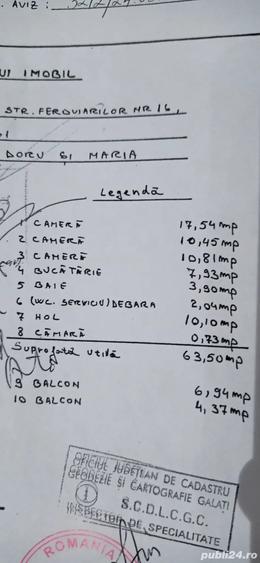 . AVIZ :
UI IMOBIL
STR. FEROVIARILOR NR 16,
DORU ȘI MARIA
Legendă
1 CAMERĂ 17,54mp
2 CAMERĂ 10,45mp
3 CAMERĂ 10,81mp
4 BUCĂTĂRIE 7,93mp
5 BAIE 3,90mp
6 (WC. SERVICIU) DEBARA 2,04mp
7 HOL 10,10mp
8 CĂMARĂ 0,73mp
Suprafată utilă 63,50mp
9 BALCON 6,94mp
10 BALCON 4,37mp
OFICIUL JUDEȚEAN DE CADASTRU
GEODEZIE ȘI CARTOGRAFIE GALAȚI
S.C.D.L.C.G.C.
INSPECTOR DE SPECIALITATE
ROMANIA
publi24.ro